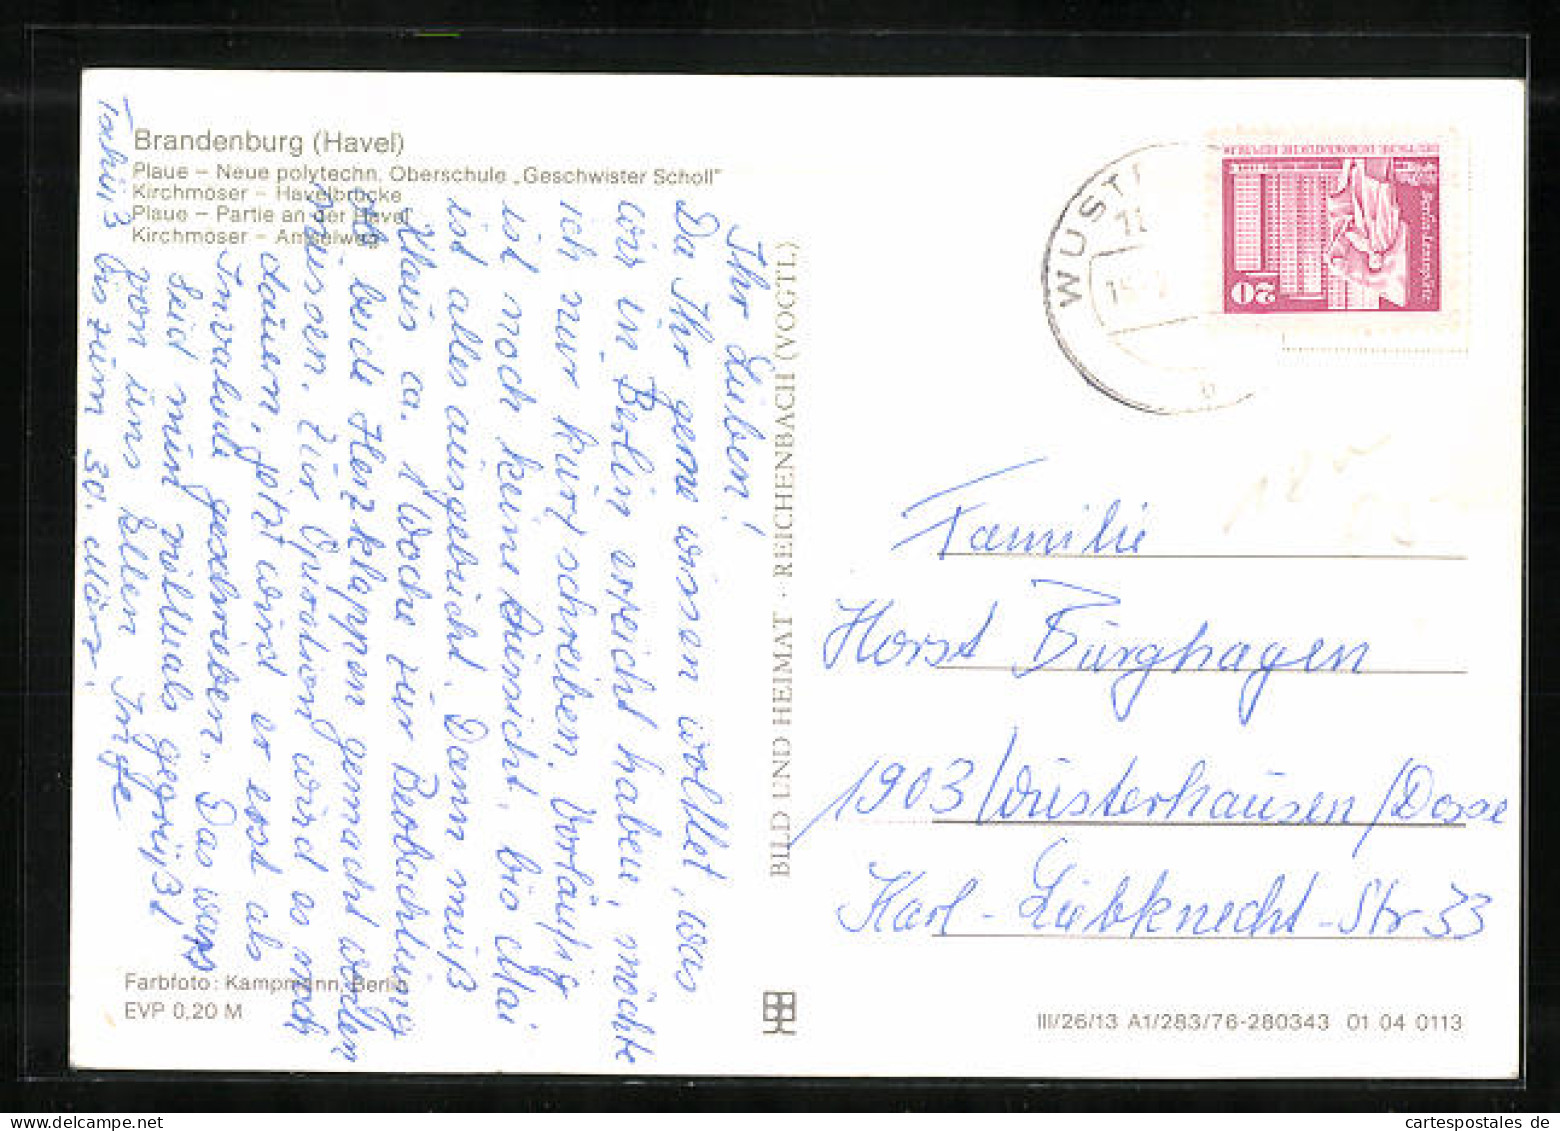 Brandenburg (Havel)
Plaue – Neue polytechn. Oberschule „Geschwister Scholl"
Kirchmöser – Havelbrücke
Plaue – Partie an der Havel
Kirchmöser – Amselweg
Ihr Lieben!
Da Ihr gerne wissen wolltet, was
wir in Berlin erreicht haben, möchte
ich nur kurz schreiben. Vorläufig
ist noch keine Aussicht, bis Mai
ist alles ausgebucht. Dann muß
Klaus ca. 1 Woche zur Beobachtung
ob beide Herzklappen gemacht werden
müssen. Zur Operation wird es noch
dauern, jetzt wird er erst als
Invalide geschrieben. Das wars
Seid nun vielmals gegrüßt
von uns allen
Tschüß bis zum 30. März.
Farbfoto: Kampmann, Berlin
EVP 0,20 M
BILD UND HEIMAT · REICHENBACH (VOGTL)
WUST
DEUTSCHE DEMOKRATISCHE REPUBLIK
Berlin Leninplatz
20
Familie
Horst Burghagen
1903 Wusterhausen/Dosse
Karl-Liebknecht-Str 33
III/26/13 A1/283/76-280343 01 04 0113
cartespostales.de